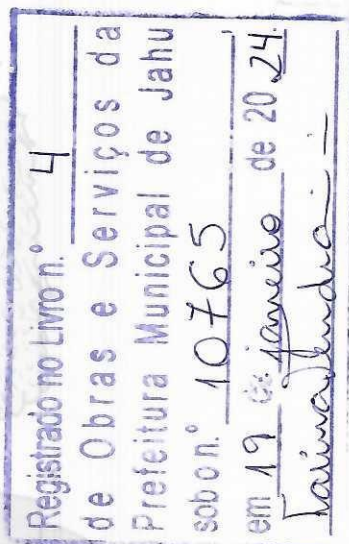 Registrado no Livro n.º 4
de Obras e Serviços da
Prefeitura Municipal de Jahu
sob o n.º 10765
em 19 de janeiro de 20 24.